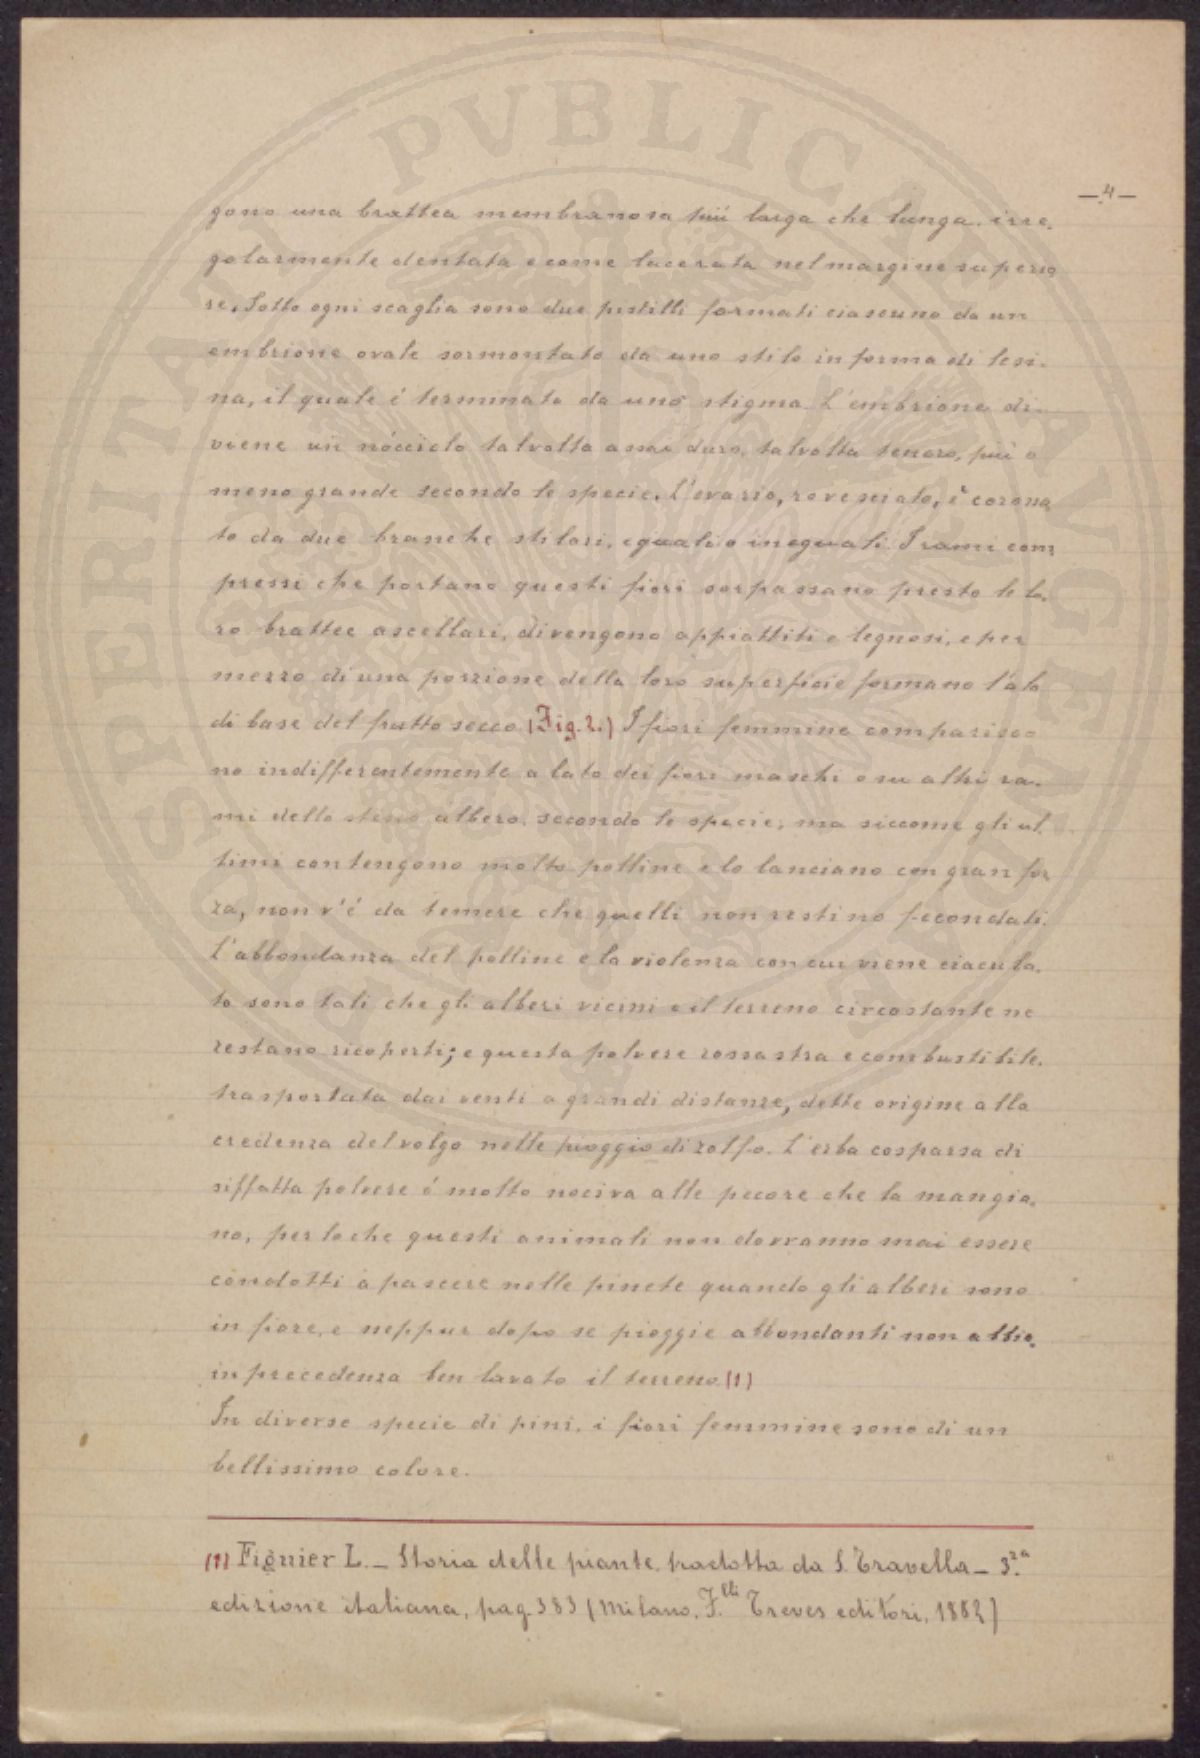 PROSPERITATI PVBLICAE AVGENDAE
—4—
gono una brattea membranosa piú larga che lunga, irre-
golarmente dentata e come lacerata nel margine superio
re. Sotto ogni scaglia sono due pistilli formati ciascuno da un
embrione ovale sormontato da uno stilo in forma di lesi-
na, il quale é terminato da uno stigma. L'embrione di-
viene un nócciolo talvolta assai duro, talvolta tenero, piú o
meno grande secondo le specie. L'ovario, rovesciato, é corona
to da due branche stilari, eguali o ineguali. I rami com
pressi che portano questi fiori sorpassano presto le lo-
ro brattee ascellari, divengono appiattiti e legnosi, e per
mezzo di una porzione della loro superficie formano l'ala
di base del frutto secco (Fig. 2.) I fiori femmine comparisco
no indifferentemente a lato dei fiori maschi o su altri ra-
mi dello stesso albero, secondo le specie; ma siccome gli ul
timi contengono molto polline e lo lanciano con gran for
za, non v'é da temere che quelli non restino fecondati.
L'abbondanza del polline e la violenza con cui viene eiacula-
to sono tali che gli alberi vicini e il terreno circostante ne
restano ricoperti; e questa polvere rossastra e combustibile,
trasportata dai venti a grandi distanze, dette origine alla
credenza del volgo nelle pioggie di zolfo. L'erba cosparsa di
siffatta polvere é molto nociva alle pecore che la mangia-
no, perloche questi animali non dovranno mai essere
condotti a pascere nelle pinete quando gli alberi sono
in fiore, e neppur dopo se pioggie abbondanti non abbia.
in precedenza ben lavato il terreno (1)
In diverse specie di pini, i fiori femmine sono di un
bellissimo colore.
(1) Figuier L. — Storia delle piante, tradotta da S. Travella — 3.ra
edizione italiana, pag. 383 (Milano, F.lli Treves editori, 1882)